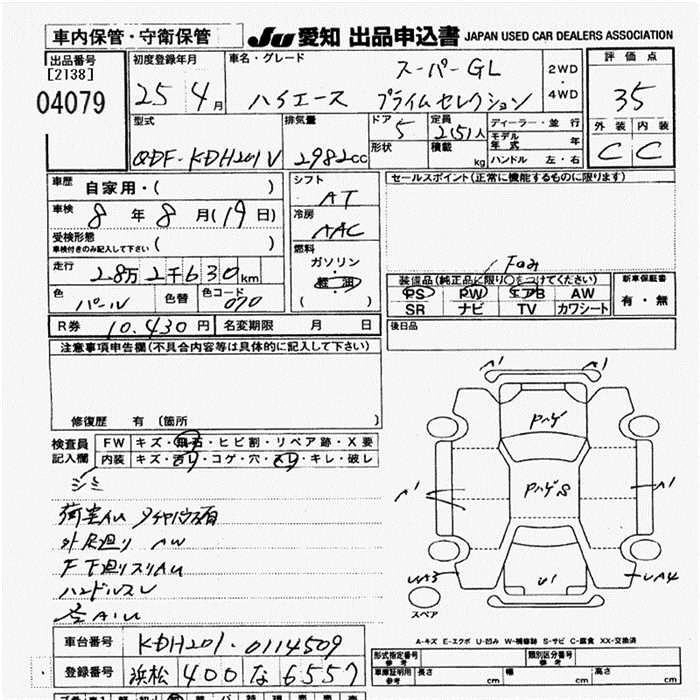 車内保管・守衛保管
JU 愛知 出品申込書 JAPAN USED CAR DEALERS ASSOCIATION
出品番号
[2138]
04079
初度登録年月
25 4月
車名・グレード
スーパーGL
ハイエース プライムセレクション
2WD
4WD
評価点
35
外装 内装
C C
型式
QDF-KDH201V
排気量
2982cc
ドア
5
形状
定員
2(5)人
積載
kg
ディーラー・並行
モデル年式 年
ハンドル 左・右
車歴
自家用・( )
車検
8年8月(19日)
受検形態
車検付きのみ記入して下さい ( )
走行
2.8万2千630km
色
パール
色替
色コード
070
R券 10.430円
名変期限 月 日
シフト
AT
冷房
AAC
燃料
ガソリン
・
軽油
( )
セールスポイント(正常に機能するものに限ります)
装備品(純正品に限り○をつけてください)
PS PW エアB AW
SR ナビ TV カワシート
新車保証書
有・無
後日品
注意事項申告欄(不具合内容等は具体的に記入して下さい)
修復歴 有 〔箇所 〕
検査員
記入欄
FW キズ・飛石・ヒビ割・リペア跡・X要
内装 キズ・汚レ・コゲ・穴・スレ・キレ・破レ
シミ
外足廻り AW
ハンドルスレ
A1 A1
P U1
A1 A1
UA3 UA4
スペア
A-キズ E-エクボ U-凹み W-補修跡 S-サビ C-腐食 XX-交換済
車台番号 KDH201-0114509
登録番号 浜松 400 な 6557
形式指定番号 参考
類別区分番号 参考
車庫証明用 参考 長さ cm 幅 cm 高さ cm